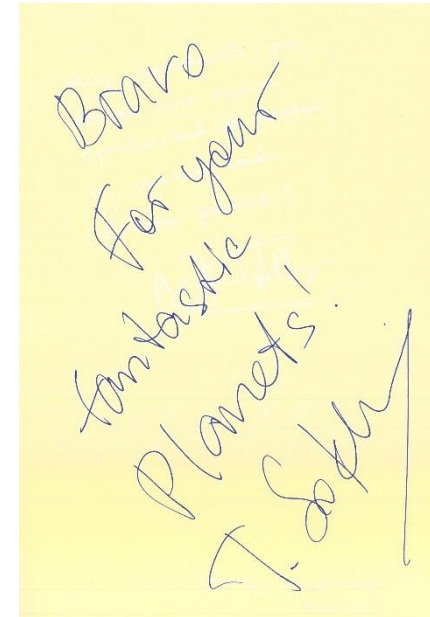 Bravo
For your
fantastic
Planets!
T. Sokh